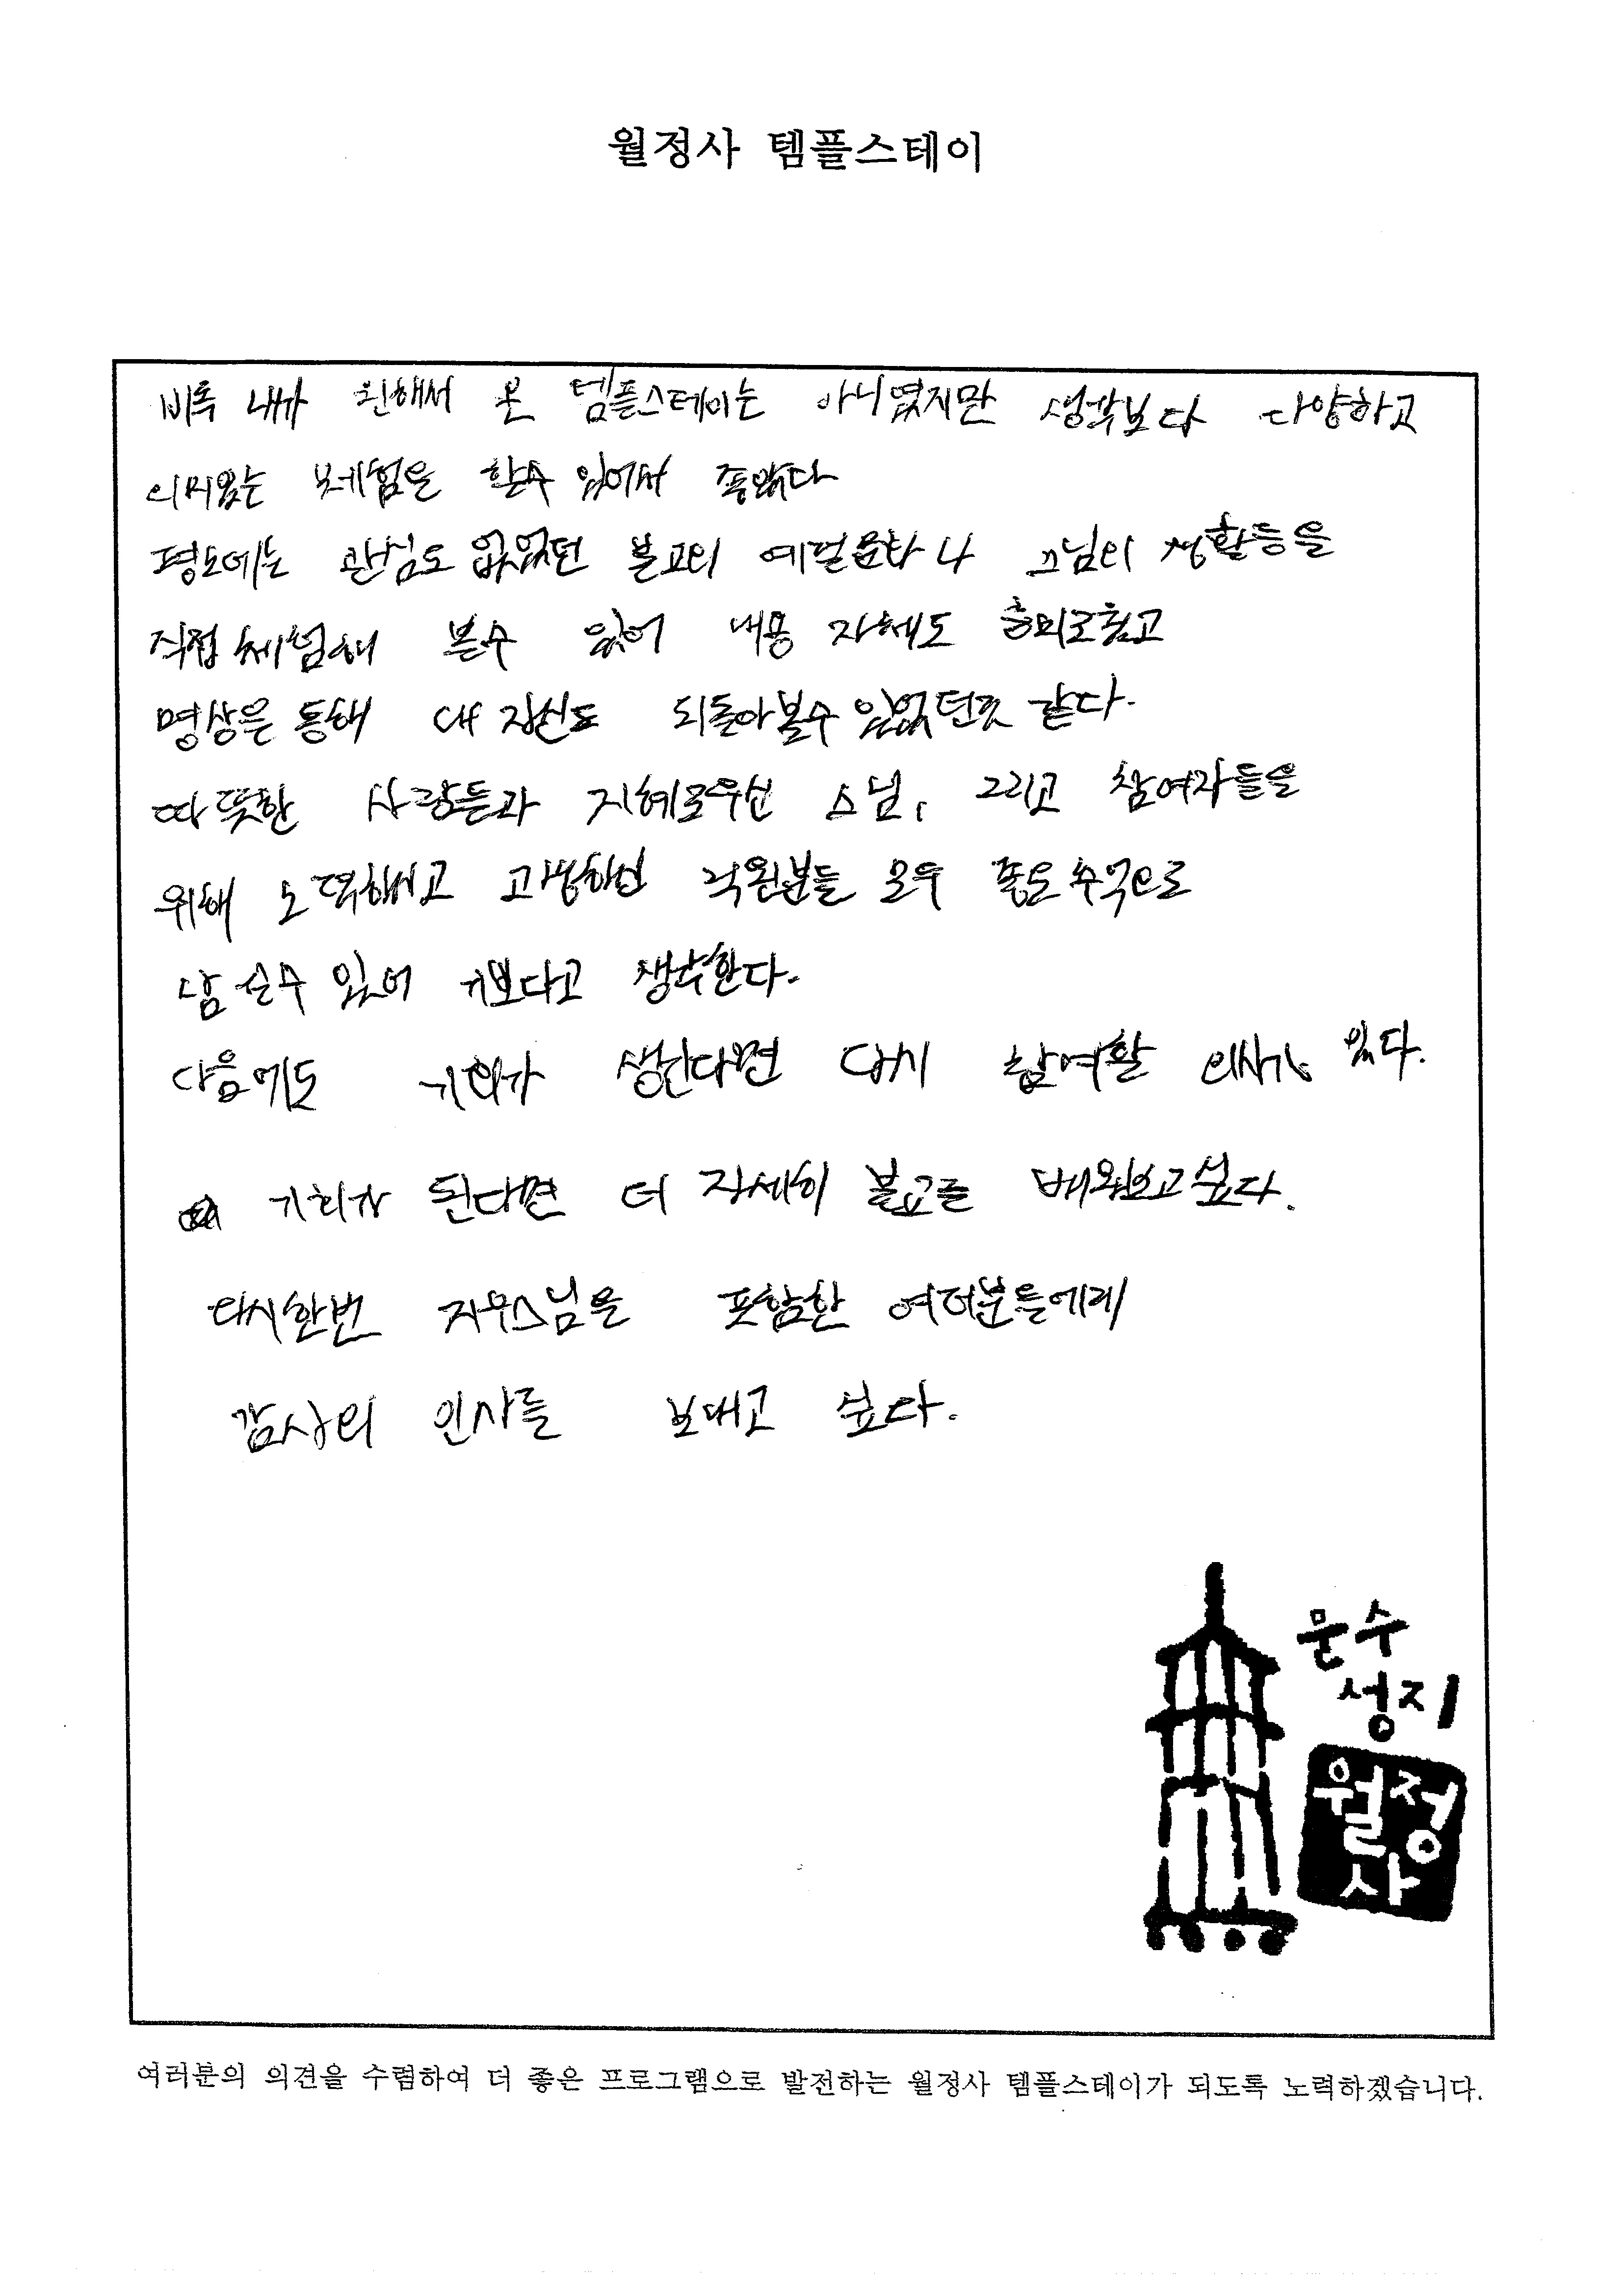 월정사 템플스테이
비록 내가 원해서 온 템플스테이는 아니였지만 생각보다 다양하고
의미있는 체험을 할수 있어서 좋았다
평소에는 관심도 없었던 불교의 예절문화나 스님의 생활등을
직접 체험해 볼수 있어 내용 자체도 흥미로웠고
명상을 통해 내 자신도 되돌아볼수 있었던것 같다.
따뜻한 사람들과 지혜로우신 스님, 그리고 참여자들을
위해 노력하시고 고생하신 직원분들 모두 좋은 추억으로
남을수 있어 기쁘다고 생각한다.
다음에도 기회가 생긴다면 다시 참여할 의사가 있다.
기회가 된다면 더 자세히 불교를 배워보고싶다.
다시한번 지우스님을 포함한 여러분들에게
감사의 인사를 보내고 싶다.
문수
성지
월정
사
여러분의 의견을 수렴하여 더 좋은 프로그램으로 발전하는 월정사 템플스테이가 되도록 노력하겠습니다.